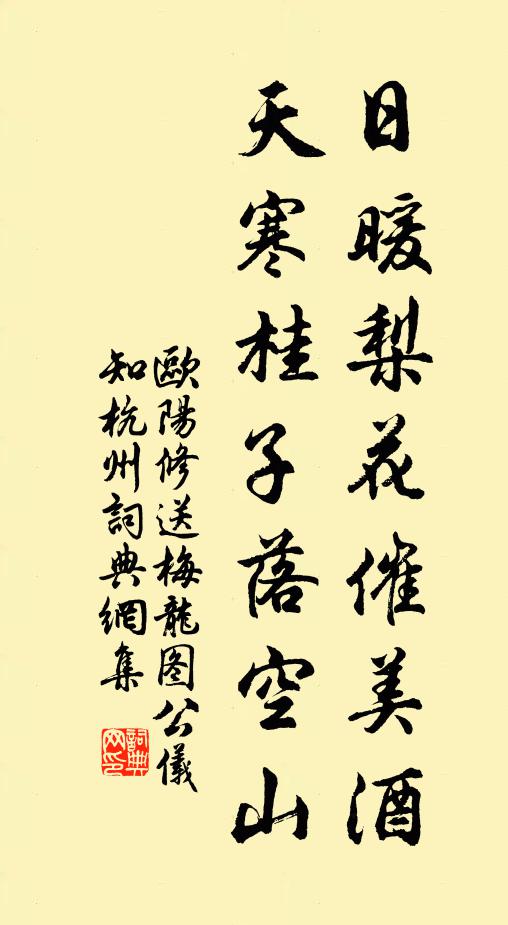 日暖梨花催美酒
天寒桂子落空山
歐陽修送梅龍图公儀
知杭州詞典網集
詞典网印